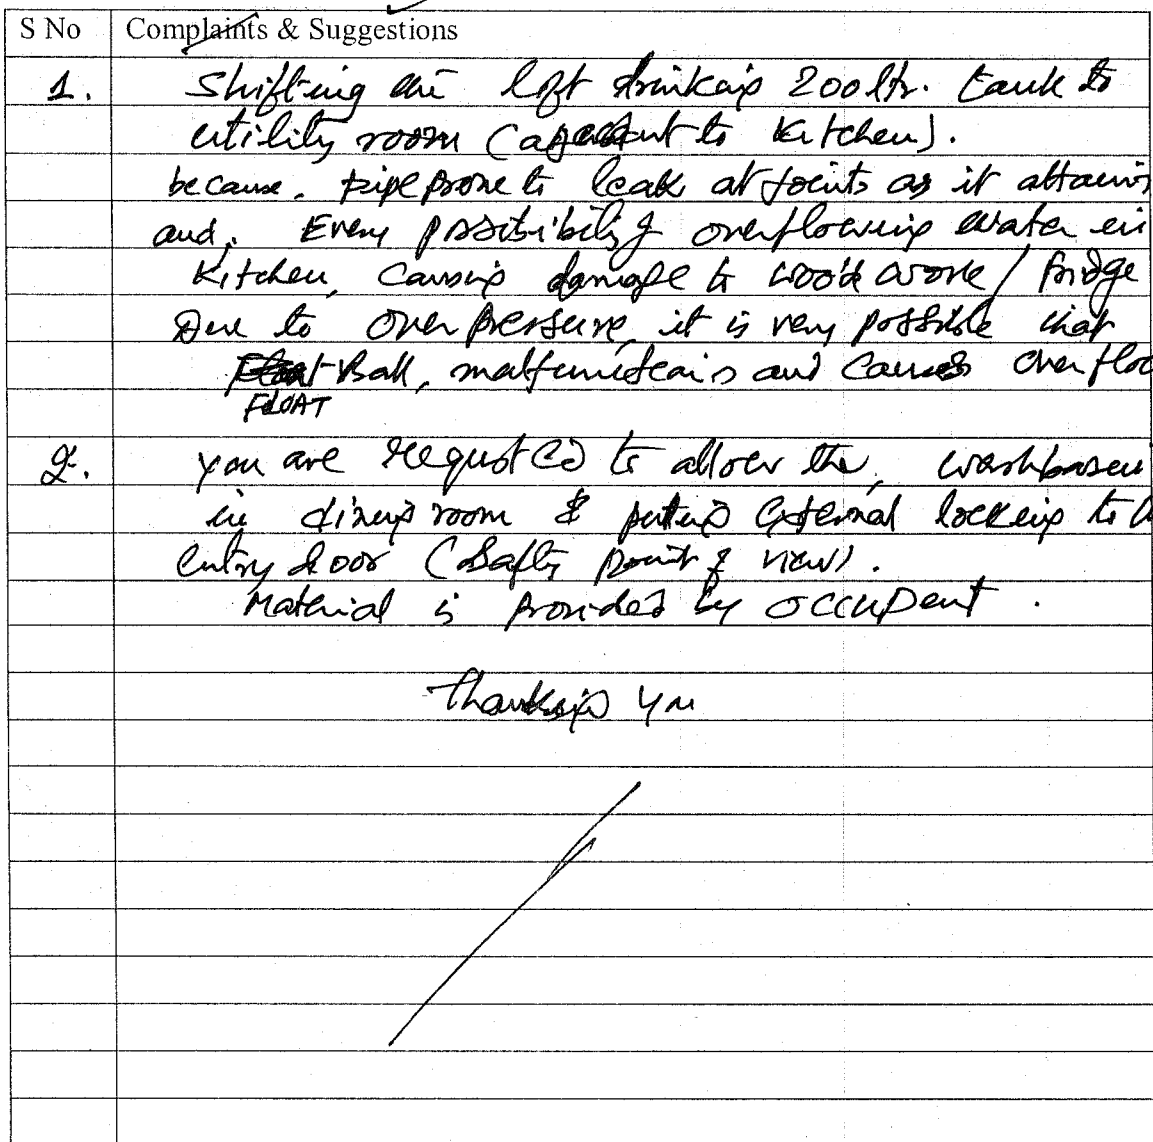 S No Complaints & Suggestions
1. Shifting the loft drinking 200 ltr. tank to
utility room (adjacent to Kitchen).
because. pipe prone to leak at joints as it
and. Every possibility of overflowing water in
Kitchen, causing damage to wood work / fridge
Due to over pressure, it is very possible that
Ball, malfunctions and causes overflo
FLOAT
2. you are requested to allow the, washbasin
in dining room & puting external locking to
entry door (Safty point of view).
Material is provided by occupent.
Thanking you